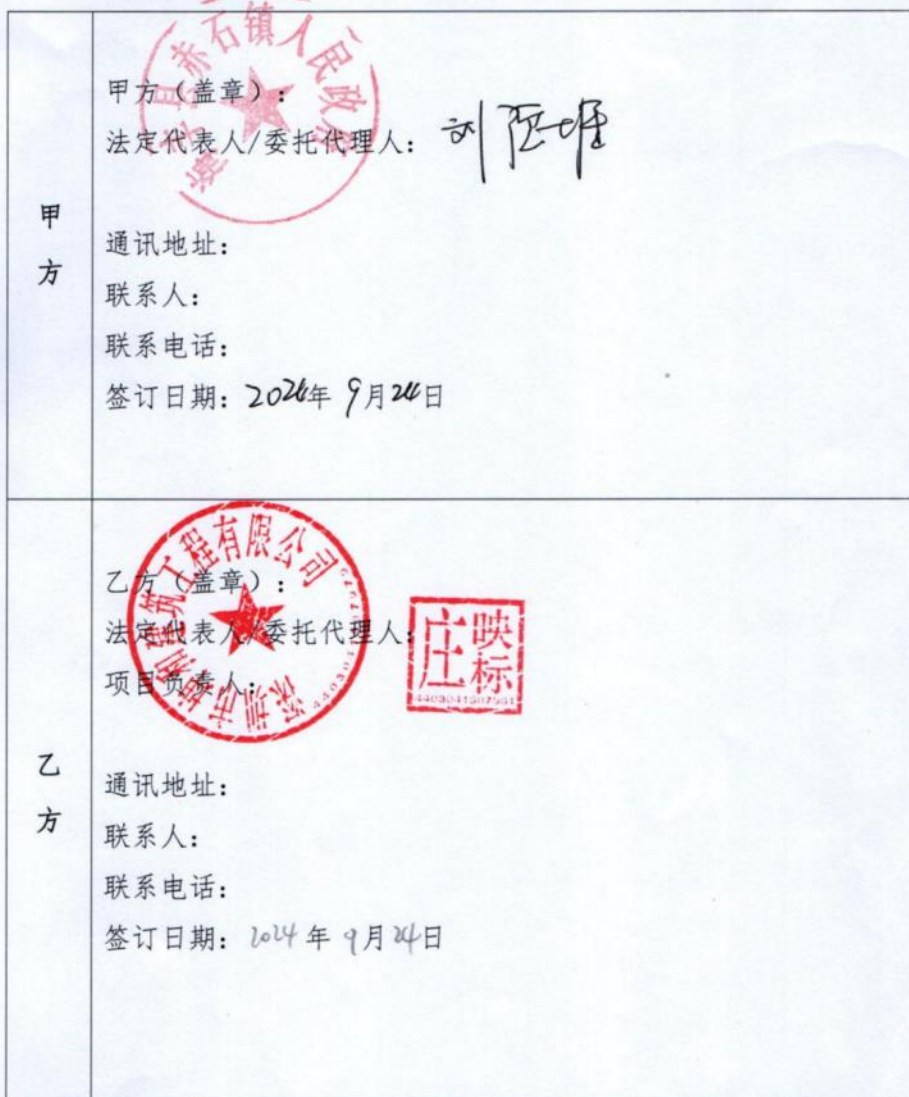 赤石镇人民政府
甲方（盖章）：
法定代表人/委托代理人： 刘
甲方
通讯地址：
联系人：
联系电话：
签订日期：2024年 9月24日
建筑工程有限公司
深圳市
乙方（盖章）：
法定代表人/委托代理人：
庄映标
项目负责人：
乙方
通讯地址：
联系人：
联系电话：
签订日期：2024年 9月24日